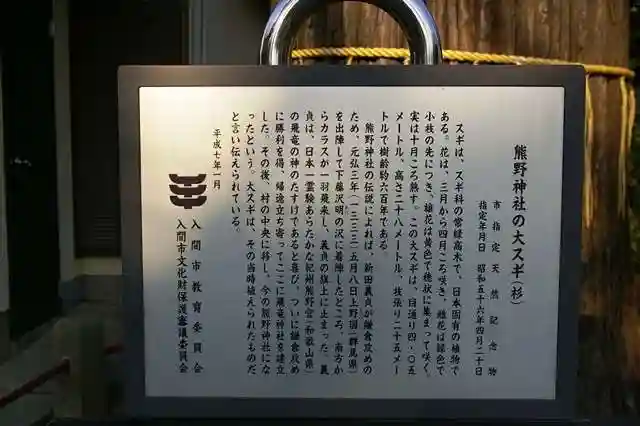 熊野神社の大スギ(杉)
市指定天然記念物
指定年月日 昭和五十六年四月二十日
スギは、スギ科の常緑高木で、日本固有の植物で
ある。花は、三月から四月ころ咲き、雌花は緑色で
小枝の先につき、雄花は黄色で穂状に集まって咲く。
実は十月ころ熟す。この大スギは、目通り四・〇五
メートル、高さ二十八メートル、枝張り二十五メー
トルで樹齢約六百年である。
熊野神社の伝説によれば、新田義貞が鎌倉攻めの
ため、元弘三年(一三三三)五月八日上野国(群馬県)
を出陣して下藤沢明の沢に着陣したところ、南方か
らカラスが一羽飛来し、義貞の旗の上に止まった。義
貞は、日本一霊験あらたかな紀州熊野宮(和歌山県)
の飛竜の神のたすけであると喜び、ついに鎌倉攻め
に勝利を得、帰途立ち寄ってここに飛竜神社を建立
した。その後、村の中央に移し、今の熊野神社にな
ったという。大スギは、その当時植えられたものだ
と言い伝えられている。
平成七年一月
入間市教育委員会
入間市文化財保護審議委員会